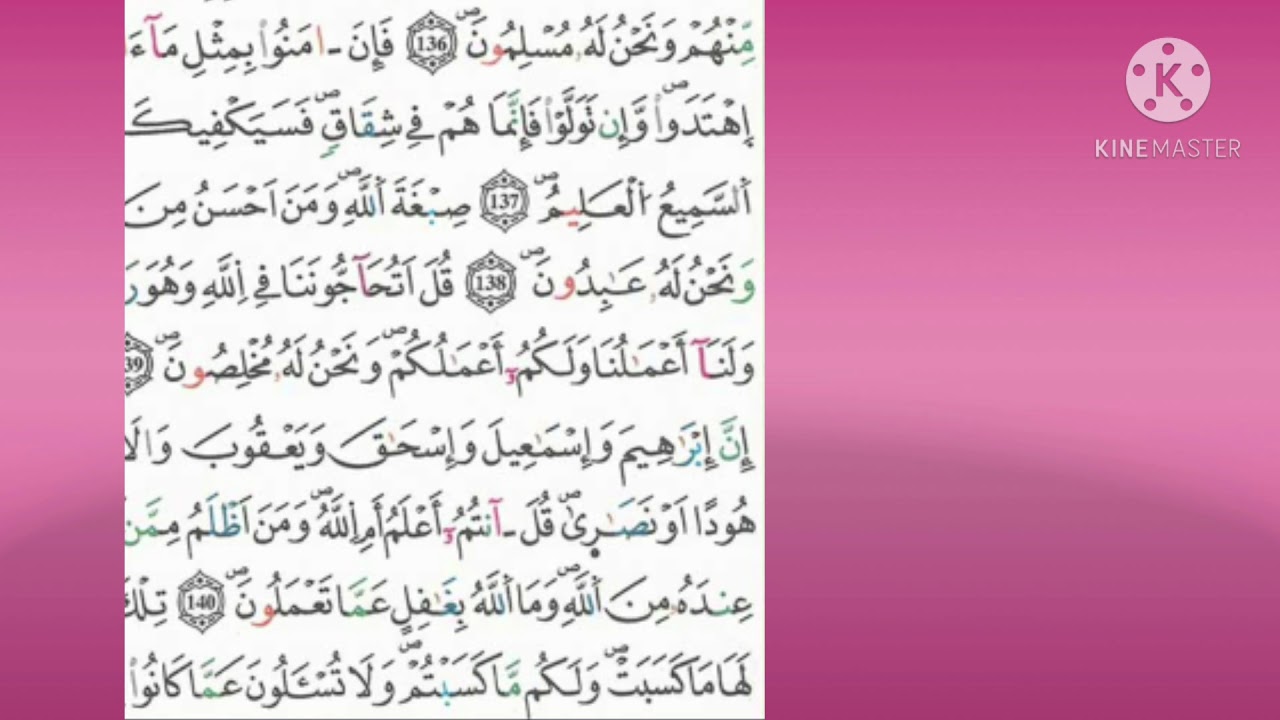 مِّنْهُمْ وَنَحْنُ لَهُۥ مُسْلِمُونَۖ 136 فَإِنَ ـ امَنُواْ بِمِثْلِ مَآ
اِهْتَدَواْۖ وَّإِن تَوَلَّوْاْ فَإِنَّمَا هُمْ فِے شِقَاقٖۖ فَسَيَكْفِيكَـ
اَ۬لسَّمِيعُ اُ۬لْعَلِيمُۖ 137 صِبْغَةَ اَ۬للَّهِۖ وَمَنَ اَحْسَنُ مِنَ
وَنَحْنُ لَهُۥ عَٰبِدُونَۖ 138 قُلَ اَتُحَآجُّونَنَا فِے اِ۬للَّهِ وَهُوَ رَ
وَلَنَآ أَعْمَٰلُنَا وَلَكُمُۥٓ أَعْمَٰلُكُمْۖ وَنَحْنُ لَهُۥ مُخْلِصُونَۖ 139
إِنَّ إِبْرَٰهِيمَ وَإِسْمَٰعِيلَ وَإِسْحَٰقَ وَيَعْقُوبَ وَالَا
هُودًا اَوْ نَصَٰر۪يٰۖ قُلَ ـ آنتُمُۥٓ أَعْلَمُ أَمِ اِ۬للَّهُۖ وَمَنَ اَظْلَمُ مِمَّن
عِندَهُۥ مِنَ اَ۬للَّهِۖ وَمَا اَ۬للَّهُ بِغَٰفِلٍ عَمَّا تَعْمَلُونَۖ 140 تِلْكَ
لَهَا مَا كَسَبَتْۖ وَلَكُم مَّا كَسَبْتُمْۖ وَلَا تُسْـَٔلُونَ عَمَّا كَانُواْ
K
KINEMASTER